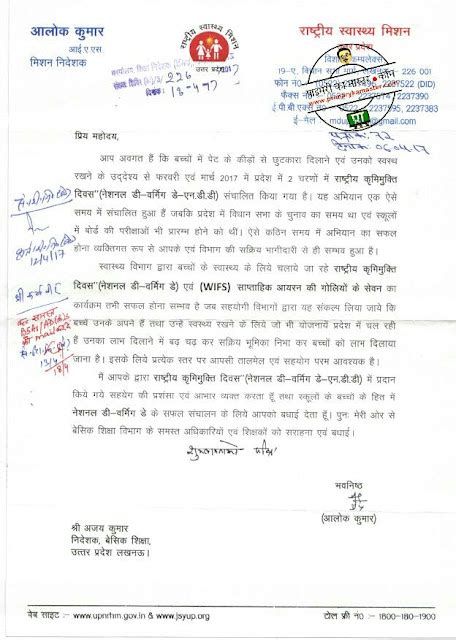 आलोक कुमार
आई ए एस
मिशन निदेशक
राष्ट्रीय स्वास्थ्य मिशन
उत्तर प्रदेश
राष्ट्रीय स्वास्थ्य मिशन
उत्तर प्रदेश
226
18-4-17
विशाल कम्पलेक्स
19-ए, विधान सभा मार्ग, लखनऊ- 226 001
फोन नं0 2237522 (DID)
फैक्स 2237390
ई.पी.बी.एक्स 2237383
ई-मेल
www.primarykamaster.com
06.04.17
प्रिय महोदय,
आप अवगत हैं कि बच्चों में पेट के कीड़ों से छुटकारा दिलाने एवं उनको स्वस्थ
रखने के उद्देश्य से फरवरी एवं मार्च 2017 में प्रदेश में 2 चरणों में राष्ट्रीय कृमिमुक्ति
दिवस"(नेशनल डी-वर्मिंग डे-एन.डी.डी) संचालित किया गया है। यह अभियान एक ऐसे
समय में संचालित हुआ हैं जबकि प्रदेश में विधान सभा के चुनाव का समय था एवं स्कूलों
में बोर्ड की परीक्षाओं भी प्रारम्भ होने को थी। ऐसे कठिन समय में अभियान का सफल
होना व्यक्तिगत रूप से आपके एवं विभाग की सक्रिय भागीदारी से ही सम्भव हुआ है।
स्वास्थ्य विभाग द्वारा बच्चों के स्वास्थ्य के लिये चलाये जा रहे राष्ट्रीय कृमिमुक्ति
दिवस"(नेशनल डी-वर्मिंग डे) एवं (WIFS) साप्ताहिक आयरन की गोलियों के सेवन का
कार्यक्रम तभी सफल होना सम्भव है जब सहयोगी विभागों द्वारा यह संकल्प लिया जाये कि
बच्चें उनके अपने हैं तथा उन्हें स्वास्थ्य रखने के लिये जो भी योजनायें प्रदेश में चल रही
हैं उनका लाभ दिलाने में बढ़ चढ़ कर सक्रिय भूमिका निभा कर बच्चों को लाभ दिलाया
जाना है। इसके लिये प्रत्येक स्तर पर आपसी तालमेल एवं सहयोग परम आवश्यक है।
में आपके द्वारा राष्ट्रीय कृमिमुक्ति दिवस"(नेशनल डी-वर्मिंग डे-एन.डी.डी) में प्रदान
किये गये सहयोग की प्रशंसा एवं आभार व्यक्त करता हूँ तथा स्कूलों के बच्चों के हित में
नेशनल डी-वर्मिंग डे के सफल संचालन के लिये आपको बधाई देता हूँ। पुनः मेरी ओर से
बेसिक शिक्षा विभाग के समस्त अधिकारियों एवं शिक्षकों को सराहना एवं बधाई।
12/4/17
13/4
18/4
भवनिष्ठ
(आलोक कुमार)
श्री अजय कुमार
निदेशक, बेसिक शिक्षा,
उत्तर प्रदेश लखनऊ।
वेब साइट :- www.upnrhm.gov.in & www.jsyup.org
टोल फ्री नं0 :- 1800-180-1900